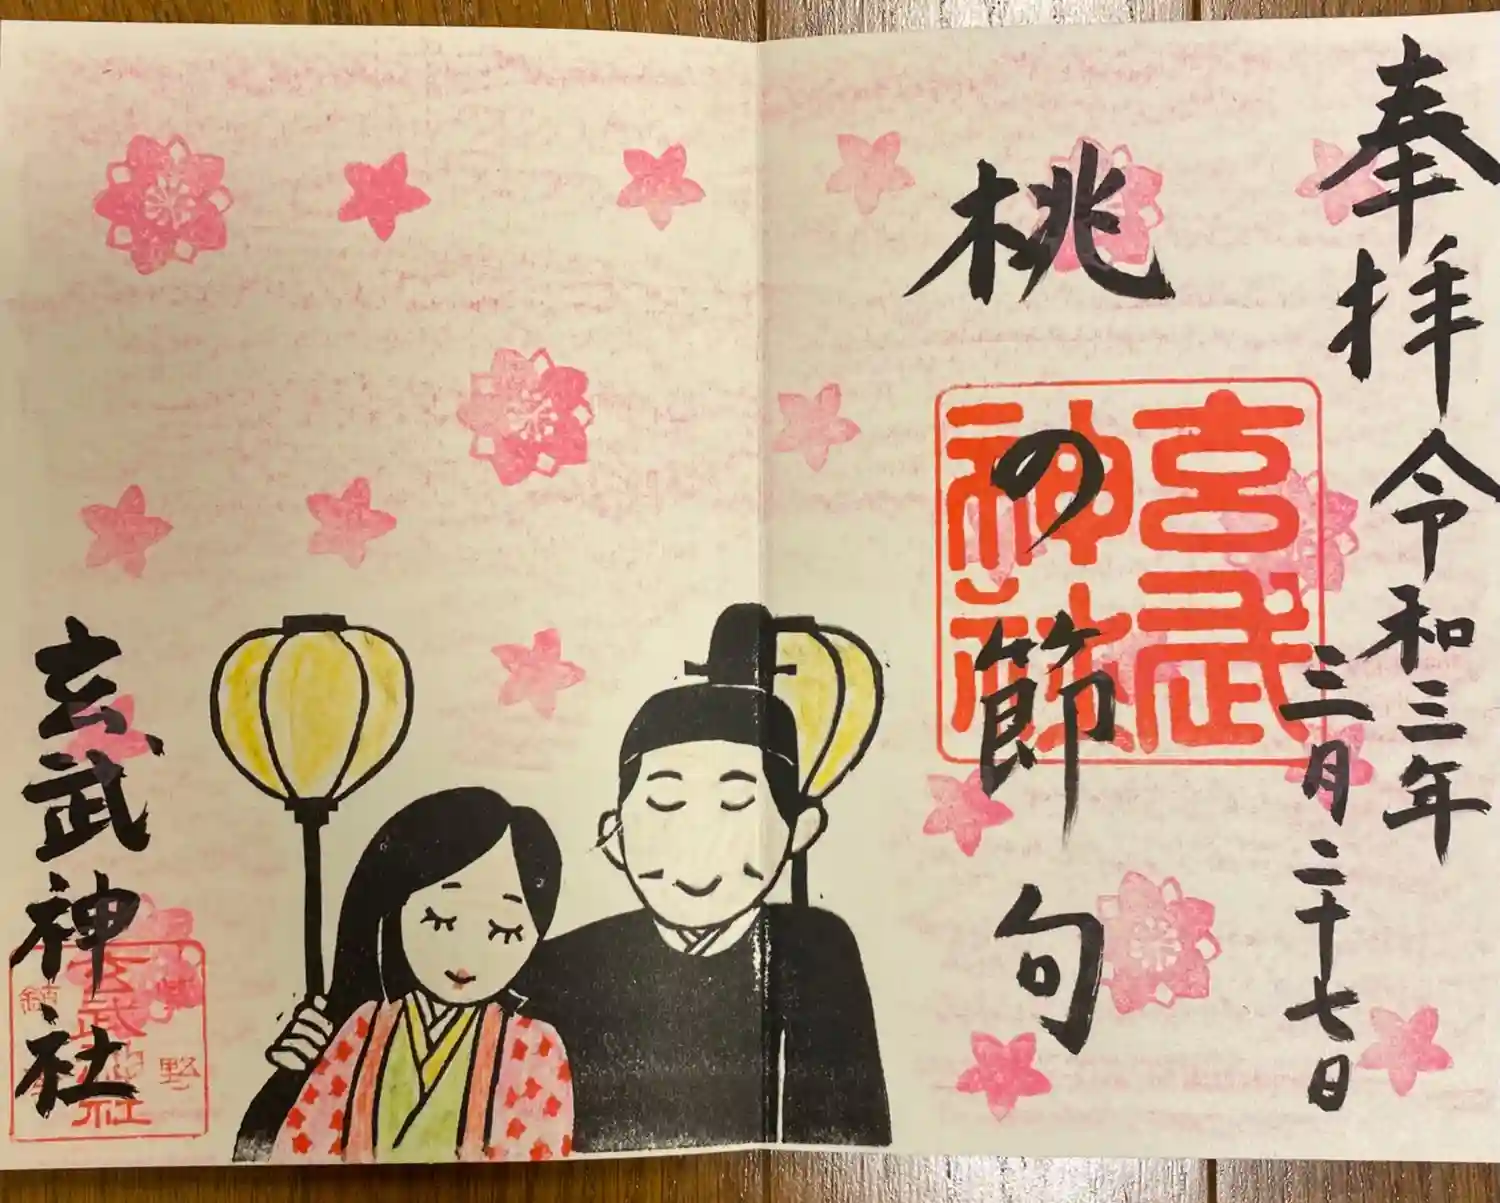 奉拝
令和三年
三月二十七日
桃の節句
玄武
神社
玄武神社
玄武神社